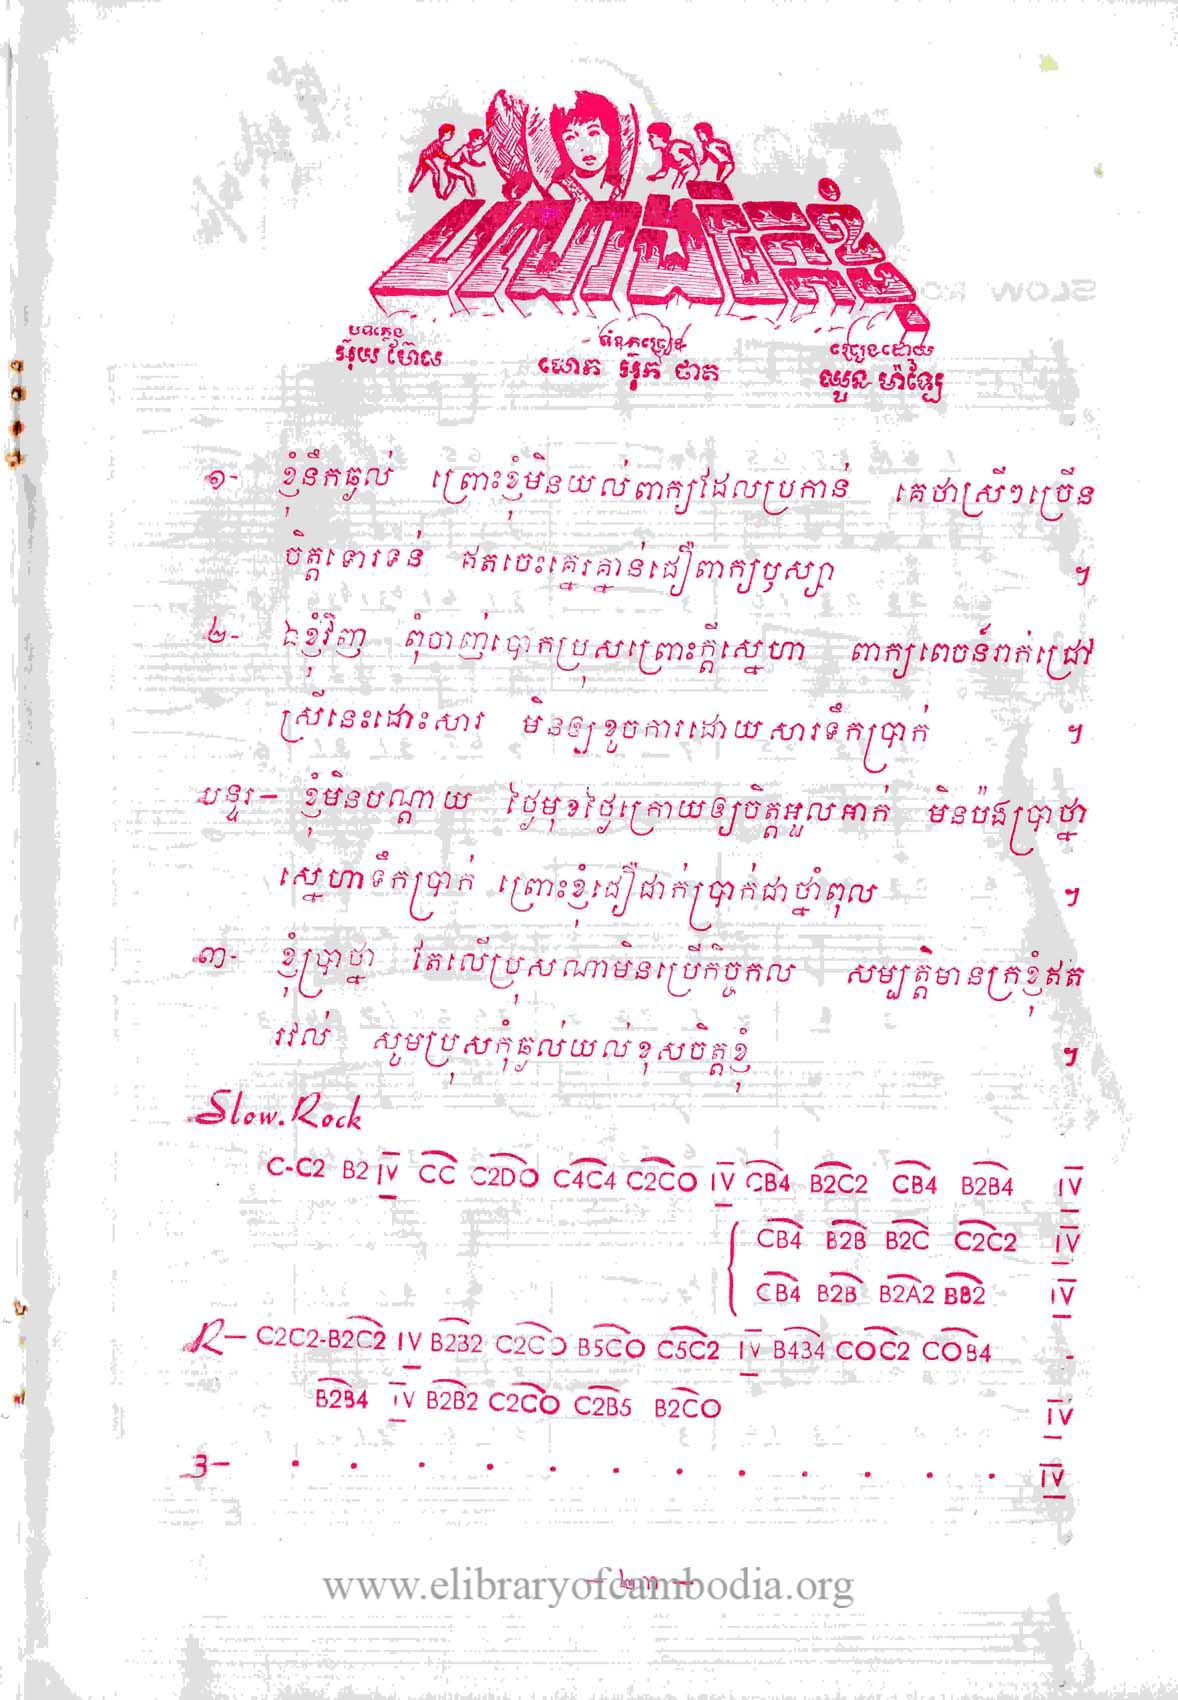 បំណាងដៃគូខ្ញុំ
បទភ្លេង
អ៊ុយ ហ៊ែល
ទំនុកច្រៀង
លោក អ៊ុក ផាត
ច្រៀងដោយ
ឈួន ម៉ាឡៃ
១- ខ្ញុំនឹកធ្ងល់ ព្រោះខ្ញុំមិនយល់ពាក្យដែលប្រកាន់ គេថាស្រីៗច្រើន
ចិត្តទោរទន់ ឥតចេះគ្នេរគ្នាន់ជឿពាក្យឫស្យា ។
២- ឯខ្ញុំវិញ ពុំចាញ់បោកប្រុសព្រោះក្ដីស្នេហា ពាក្យពេចន៍រាក់ជ្រៅ
ស្រីនេះដោះសារ មិនឲ្យខូចការដោយសារទឹកប្រាក់ ។
បន្ទរ— ខ្ញុំមិនបណ្ដោយ ថ្ងៃមុខថ្ងៃក្រោយឲ្យចិត្តអួលអាក់ មិនប៉ងប្រាថ្នា
ស្នេហាទឹកប្រាក់ ព្រោះខ្ញុំជឿជាក់ប្រាក់ជាថ្នាំពុល ។
៣- ខ្ញុំប្រាថ្នា តែលើប្រុសណាមិនប្រើកិច្ចកល សម្បត្តិមានក្រខ្ញុំឥត
រវល់ សូមប្រុសកុំធ្ងល់យល់ខុសចិត្តខ្ញុំ ។
Slow. Rock
C-C2 B2 IV CC C2DO C4C4 C2CO IV CB4 B2C2 CB4 B2B4 IV
CB4 B2B B2C C2C2 IV
CB4 B2B B2A2 BB2 IV
R— C2C2-B2C2 IV B2B2 C2CO B5CO C5C2 IV B4B4 COC2 COB4 -
B2B4 IV B2B2 C2CO C2B5 B2CO IV
3— . . . . . . . . . . . . IV
— ២៣ —
www.elibraryofcambodia.org